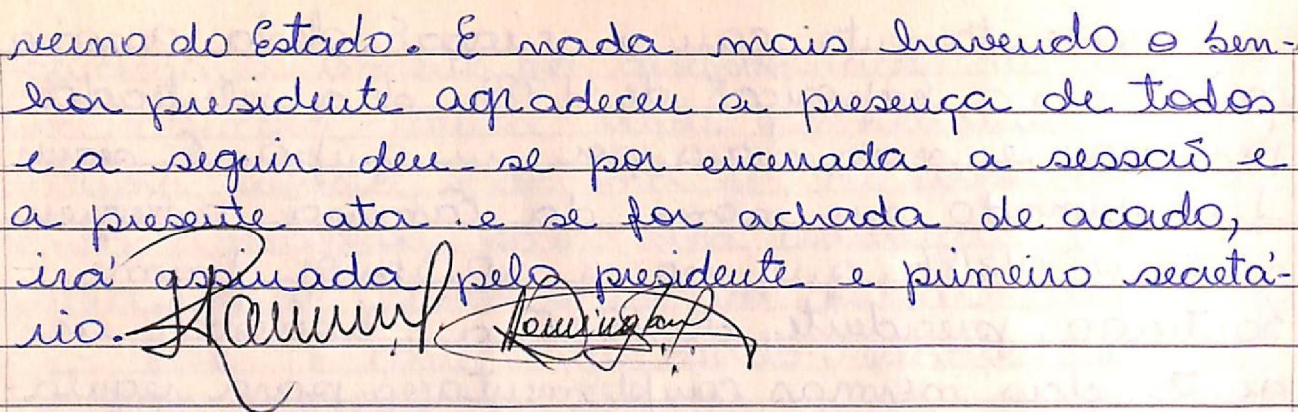 verno do Estado. E nada mais havendo o sen-
hor presidente agradeceu a presença de todos
e a seguir deu-se por encerrada a sessão e
a presente ata e se for achada de acordo,
irá assinada pelo presidente e primeiro secretá-
rio.